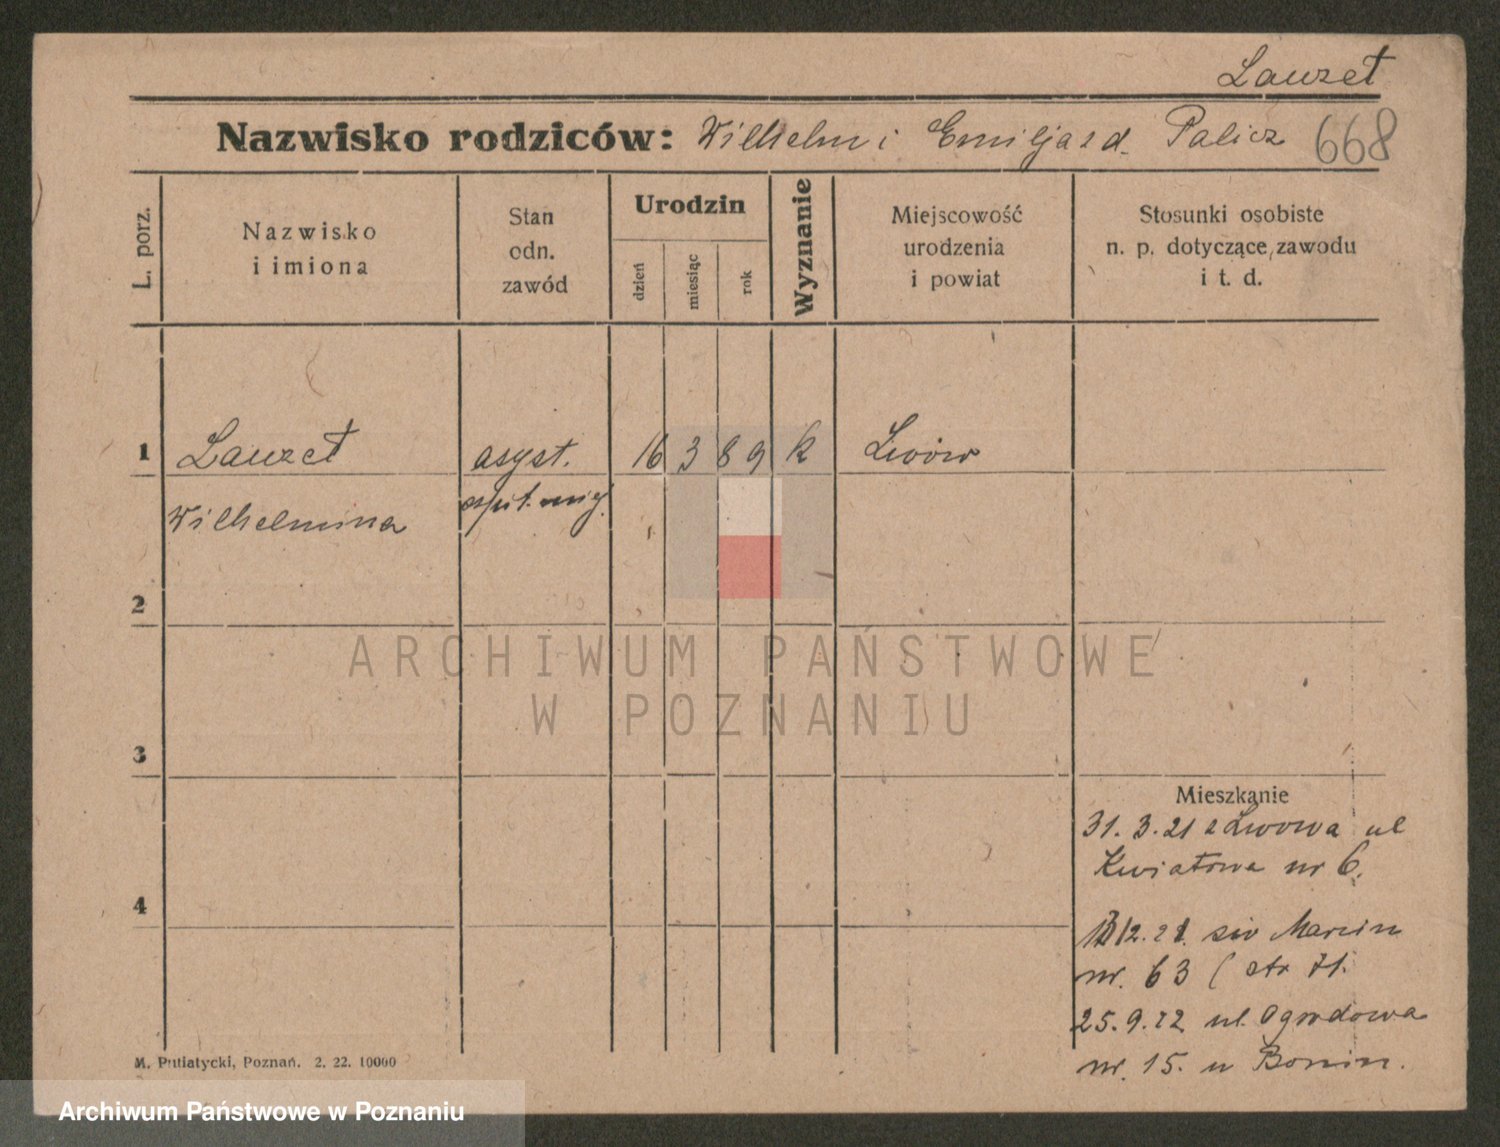 Lauzet
Nazwisko rodziców: Wilhelm i Emilja z d. Palicz 668
L. porz.
Nazwisko
i imiona
Stan
odn.
zawód
Urodzin
dzień
miesiąc
rok
Wyznanie
Miejscowość
urodzenia
i powiat
Stosunki osobiste
n. p. dotyczące zawodu
i t. d.
1 Lauzet asyst. 16 3 89 k Lwów
Wilhelmina szpit. miej.
2
ARCHIWUM PAŃSTWOWE
W POZNANIU
3
Mieszkanie
31. 3. 21 z Lwowa ul
Kwiatowa nr 6.
4
12. 21. św Marcin
nr. 63 ( str 71.
25. 9. 22 ul. Ogrodowa
nr. 15. u Bonin.
M. Putiatycki, Poznań. 2. 22. 10000
Archiwum Państwowe w Poznaniu